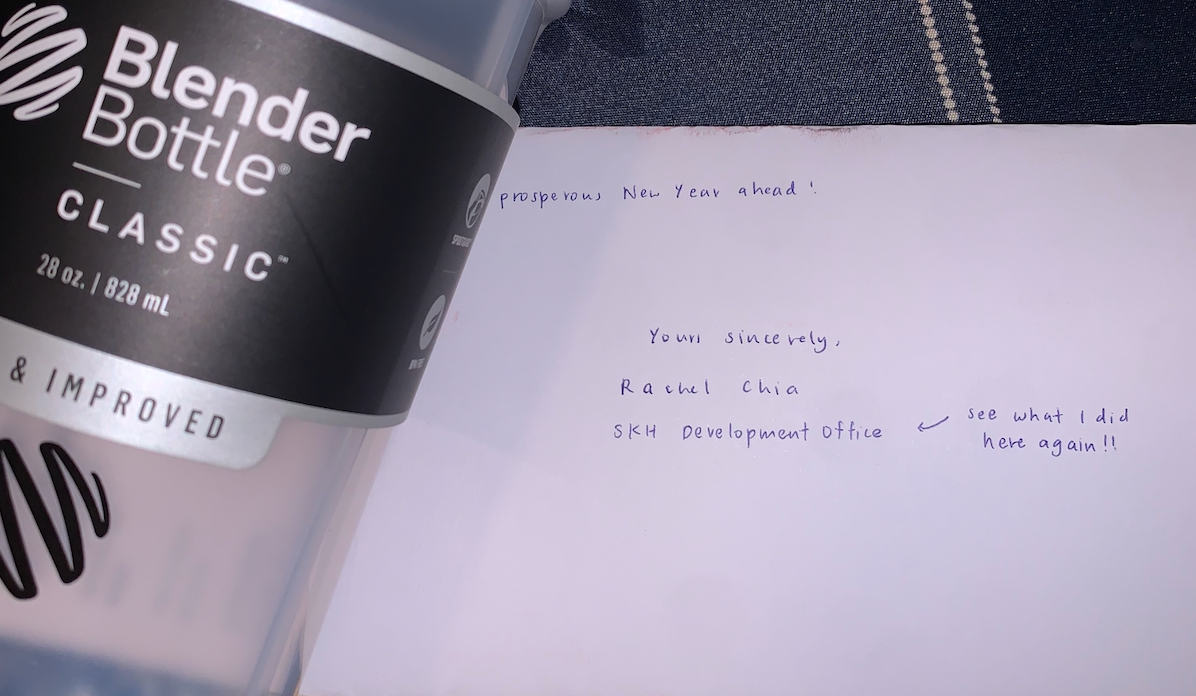 Blender
Bottle®
CLASSIC™
28 oz. | 828 mL
& IMPROVED
prosperous New Year ahead!
Yours sincerely,
Rachel Chia
SKH Development Office
see what I did
here again!!